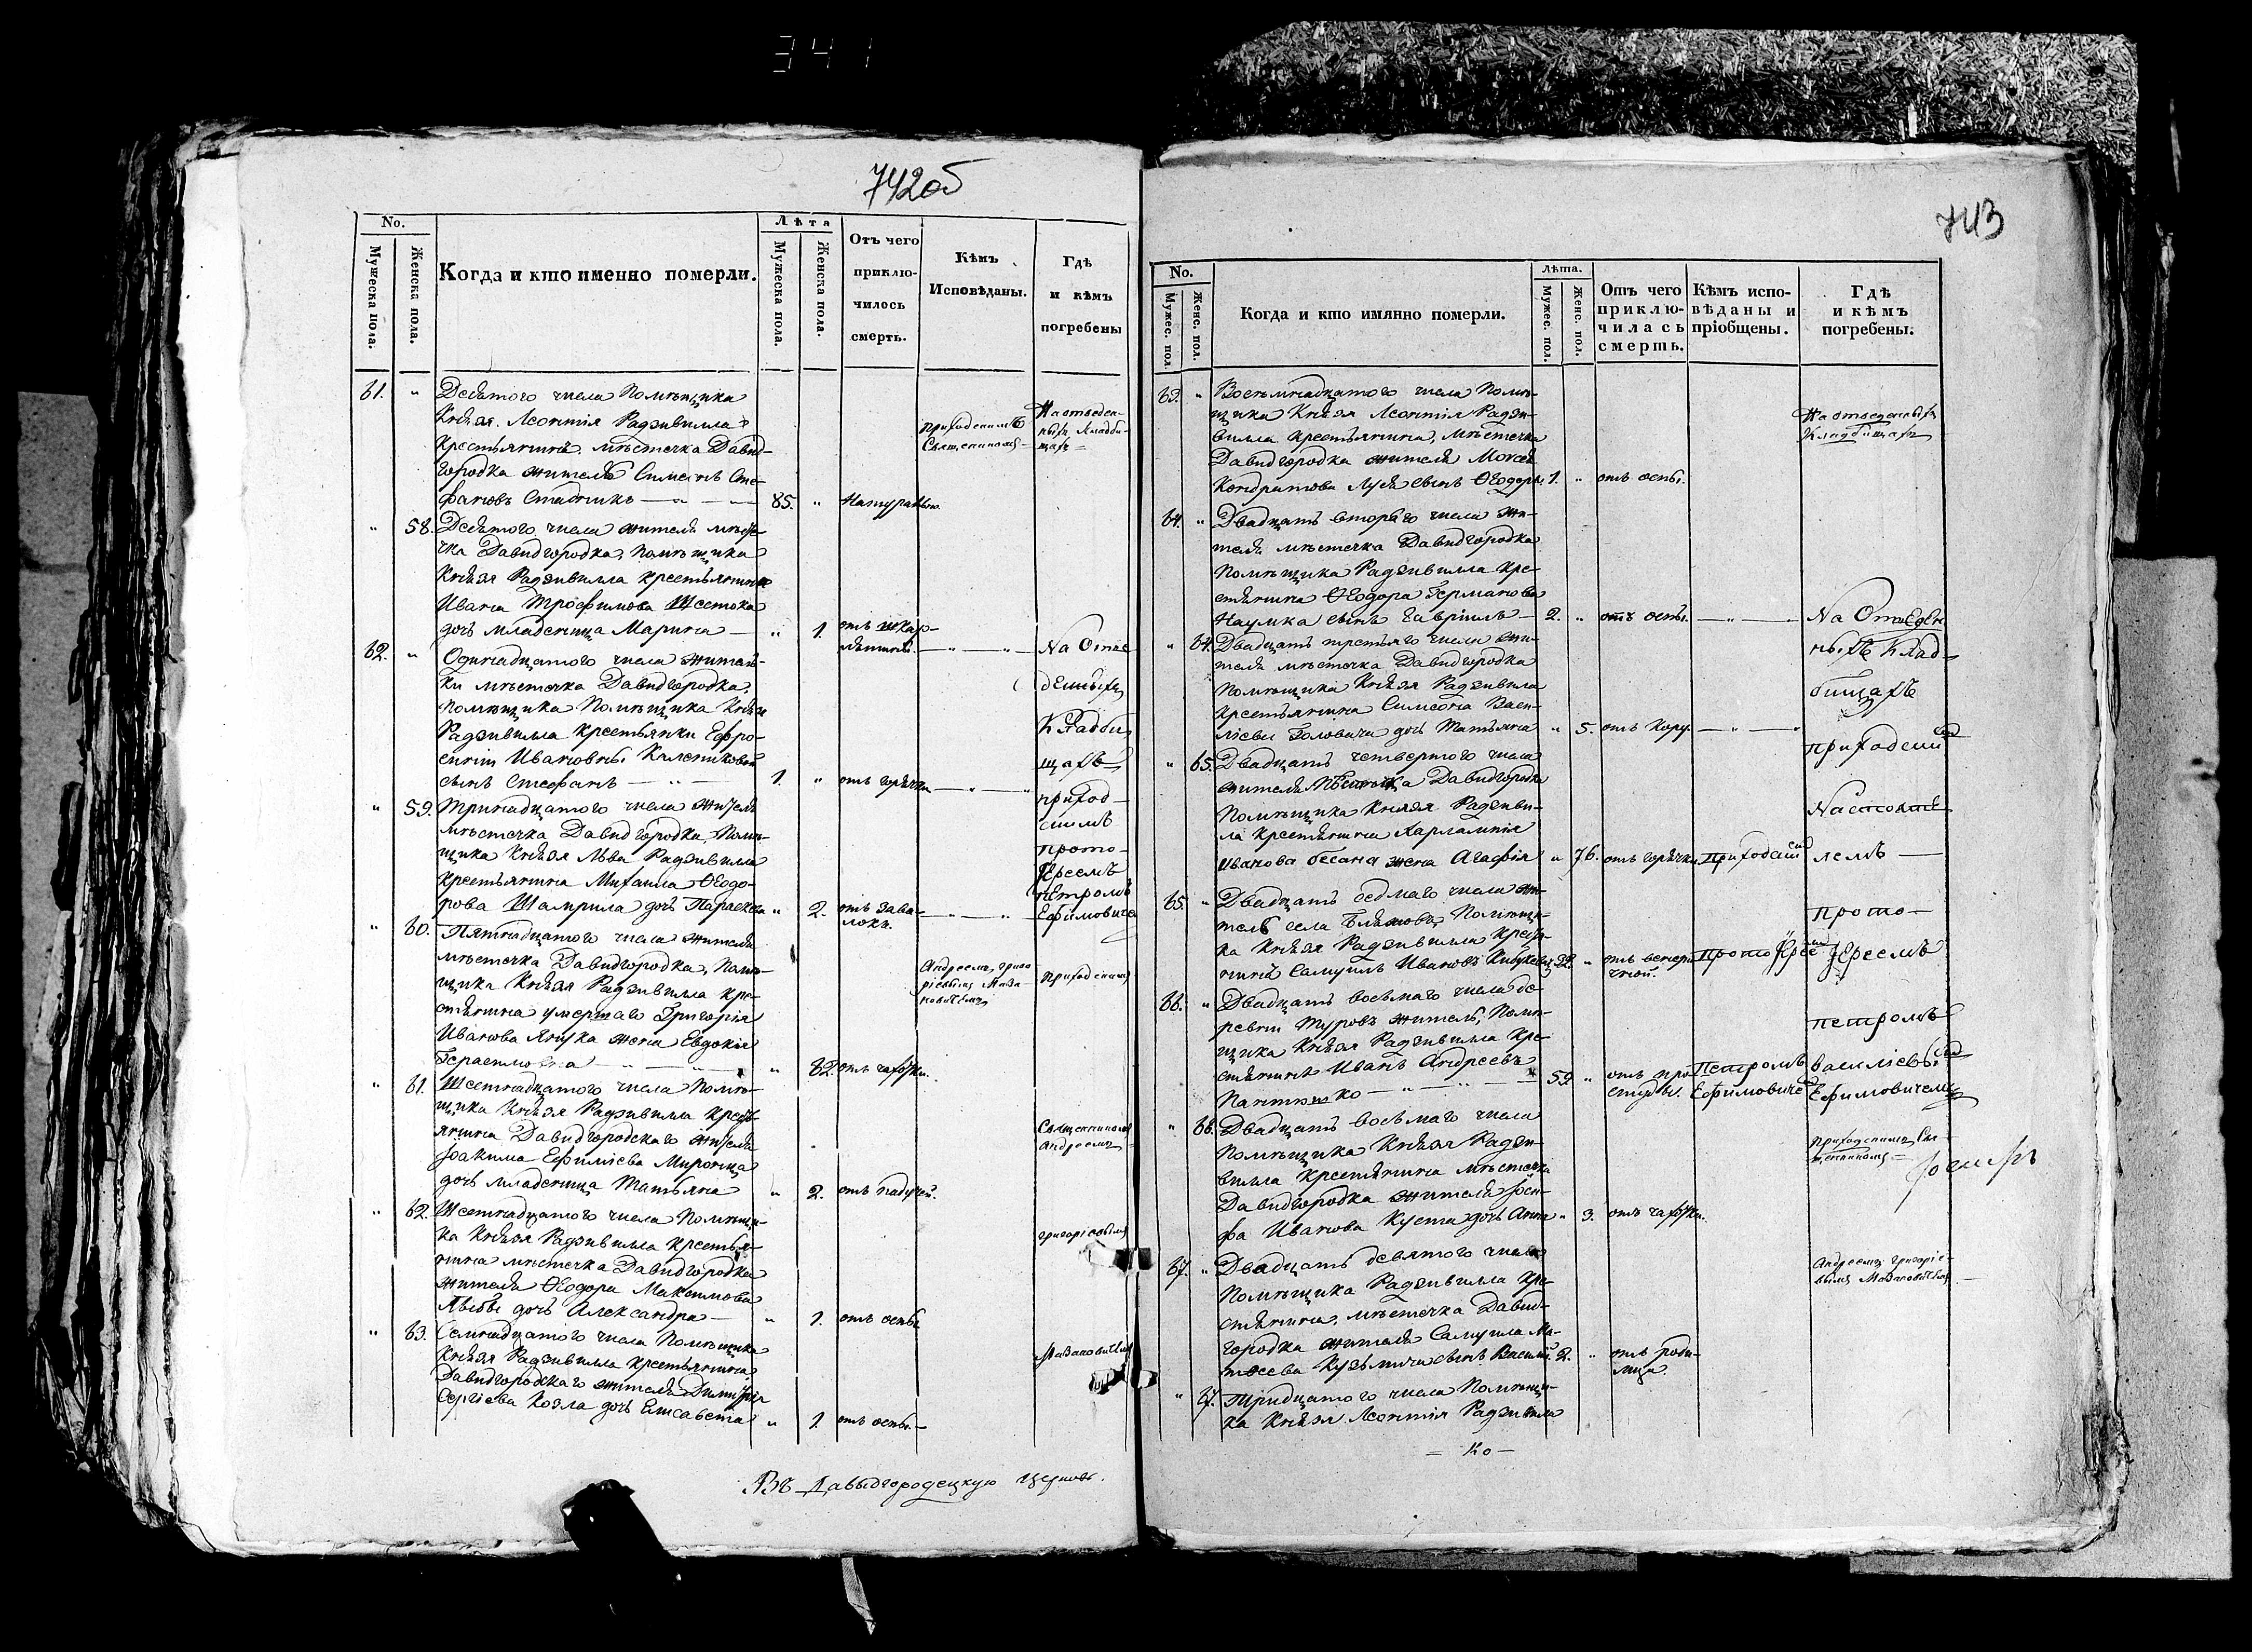 341
742об
No.
Мужеска пола.
Женска пола.
Когда и кто именно померли.
Лѣта
Мужеска пола.
Женска пола.
Отъ чего приклю-
чилось
смерть.
Кѣмъ
Исповѣданы.
Гдѣ
и кѣмъ
погребены
61. " Девятого числа Помѣщика
Князя Леонтія Радзивилла
крестьянинъ, мѣстечка Давид-
городка житель Симеонъ Сте-
фановъ Стадникъ — " — 85. " Натурально.
приходскимъ
Священникомъ
На отведен-
ныхъ кладби-
щахъ
" 58. Девятого числа жителя мѣсте-
чка Давидгородка, помѣщика
Князя Радзивилла крестьянина
Ивана Трофимова Шестока
дочь младеница Марина — " 1.
62. " Одинадцатого числа житель-
ки мѣстечка Давидгородка,
помѣщика Помѣщика Князя
Радзивилла крестьянки Ефро-
синіи Ивановны
сынъ Стефанъ — " — 1. " отъ горячки — " —
На отве
денныхъ
Кладби
щахъ
приход-
скимъ
прото-
Іереемъ
Петромъ
Ефимовиче
" 59. Тринадцатого числа жителя
мѣстечка Давидгородка, Помѣ-
щика Князя Льва Радзивилла
крестьянина Михаила Ѳеодо-
рова Шамрила дочь Параскева " 2. отъ зава-
локъ. — " —
" 60. Пятнадцатого числа жителя
мѣстечка Давидгородка, Помѣ-
щика Князя Радзивилла кре-
стьянина умершаго Григорія
Иванова жена Евдокія
Герасимовна — " — " 62. отъ чахотки.
Андреемъ, Григо
ріевымъ Маза-
новичемъ
приходскимъ
" 61. Шестнадцатого числа Помѣ-
щика Князя Радзивилла кресть-
янина Давидгородского жителя
Іоакима Ефиміева Миронца
дочь младеница Татьяна " 2. отъ падучей.
Священникомъ
Андреемъ
" 62. Шестнадцатого числа Помѣщи-
ка Князя Радзивилла крестья-
нина мѣстечка Давидгородка
жителя Ѳеодора Максимова
дочь Александра — " 1. отъ оспы
григоріевымъ
" 63. Семнадцатого числа Помѣщика
Князя Радзивилла крестьянина
Давидгородскаго жителя Димитрія
Сергіева Козла дочь Елисавета " 1. отъ оспы.—
Мазановичемъ
Въ Давыдгородецкую Церковь.
743
No.
Мужес. пол.
Женс. пол.
Когда и кто имянно померли.
лѣта.
Мужес. пол.
Женс. пол.
Отъ чего
приклю-
чилась
смерть.
Кѣмъ испо-
вѣданы и
пріобщены.
Гдѣ
и кѣмъ
погребены.
63. " Восемнадцатого числа Помѣ-
щика Князя Леонтія Радзи-
вилла крестьянина, мѣстечка
Давидгородка жителя Моисея
Кондратова сынъ Ѳеодоръ 1. " отъ оспы.
На отведенныхъ
Кладбищахъ
64. " Двадцать второго числа жи-
теля мѣстечка Давидгородка
Помѣщика Радзивилла кре-
стянина Ѳеодора Германова
Наумка сынъ Гавріилъ — 2. " отъ оспы. — " —
На Отведен
ныхъ Клад-
бищахъ
" 64. Двадцать третьяго числа жи-
теля мѣстечка Давидгородка
Помѣщика Князя Радзивила
крестьянина Симеона Васи-
ліева Головича дочь Татьяна " 5. отъ кору. — " —
приходскимъ
" 65. Двадцать четвертого числа
жителя Мѣстечка Давидгородка
Помѣщика Князя Радзиви-
ла крестянина Харлампія
Иванова жена Агафія " 76. отъ горячки. Приходским
Настояте
лемъ —
65. " Двадцать седмаго числа жи-
тель села Помѣщи-
ка Князя Радзивилла кресть-
янинъ Самуилъ Ивановъ 32. " отъ венери
чной. Прото Іерее
Прото-
Іереемъ
66. " Двадцать восьмаго числа де-
ревни Туровъ житель, Помѣ-
щика Князя Радзивилла кре-
стянинъ Иванъ Андреевъ
Пантюшко — " — 59. " отъ про
студы. Петромъ
Ефимовиче
Петромъ
Василіевы
Ефимовичемъ
" 66. Двадцать восьмаго числа
Помѣщика Князя Радзи-
вилла крестянина мѣстечка
Давидгородка жителя Іоси-
фа Иванова Куста дочь Анна " 3. отъ чахотки.
приходскимъ Свя-
щенникомъ
67. " Двадцать девятого числа
Помѣщика Радзивилла кре-
стянина, мѣстечка Давид-
городка жителя Самуила Ма-
тѳеева Кузьмича сынъ Василій. 2. " отъ роди-
мца.
Андреемъ григоріе-
вымъ Мазановичемъ
" 67. Тридцатого числа Помѣщи-
ка Князя Леонтія Радзивила
— Ко —